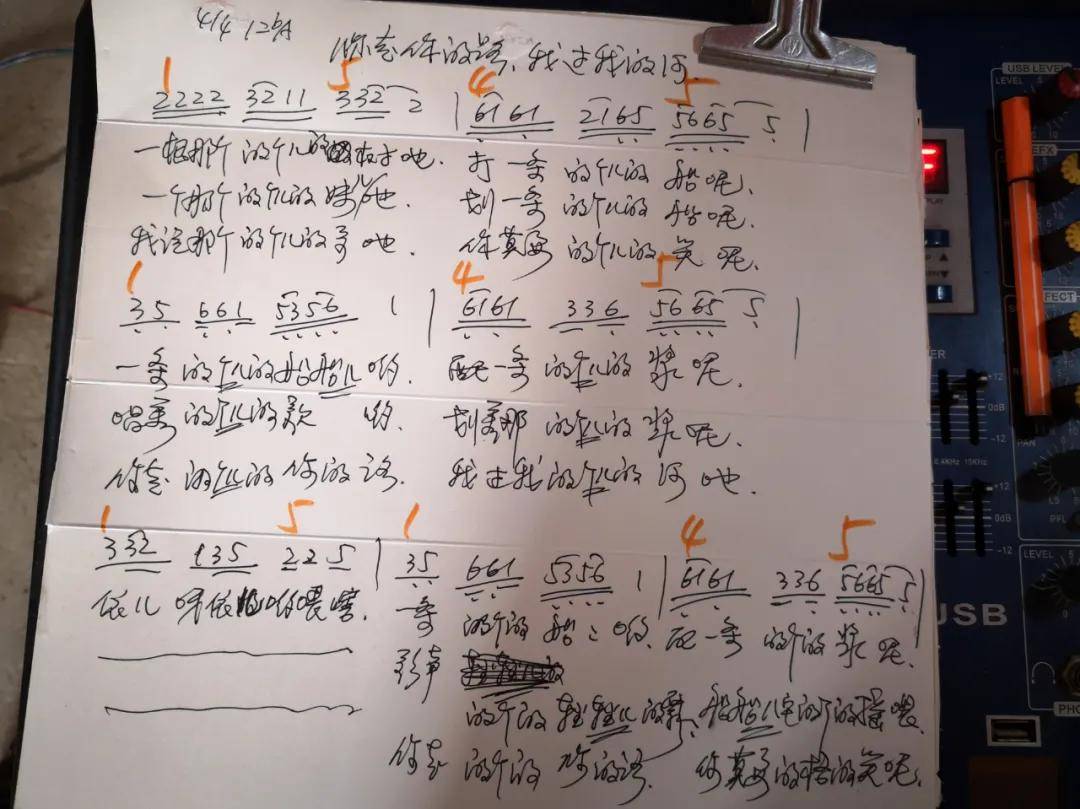 4/4 1=♭A
你走你的路、我过我的河
1 5 4 5
2222 3211 332 2 | 6161 2165 5665 5 |
一根那个的儿的 吔. 打一条的儿的船呢.
一个那个的儿的妹儿吔. 划一条的儿的船呢.
我说那个的儿的哥吔. 你莫要的儿的笑呢.
1 4 5
35 661 5356 1 | 6161 336 5665 5 |
一条的个儿的船船儿哟. 配一条的个儿的浆呢.
唱着的个儿的歌哟. 划着那的个儿的浆呢.
你走的个儿的你的路. 我过我的个儿的河吔.
1 5 1 4 5
332 135 225 | 35 661 5356 1 | 6161 336 5665 5 |
依儿呀依 哟喂
一条的个的船船哟. 配一条的个的浆呢.
的个的 船船儿 的个的 喂
你走的个的你的路. 你莫要的 的笑呢.
USB LEVEL
LEVEL
EFX
EFFECT
PAN
+12
0dB
-12
6.4KHz 15KHz
+12
0dB
-12
PFL
LEVEL
USB